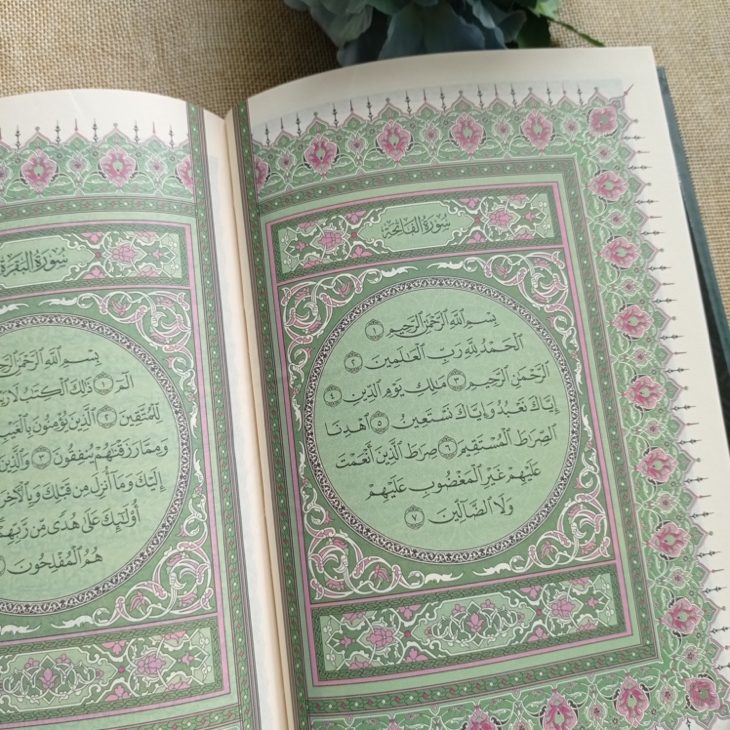 سُورَةُ الفَاتِحَةِ
بِسْمِ ٱللَّهِ ٱلرَّحْمَٰنِ ٱلرَّحِيمِ ١
ٱلْحَمْدُ لِلَّهِ رَبِّ ٱلْعَٰلَمِينَ ٢
ٱلرَّحْمَٰنِ ٱلرَّحِيمِ ٣ مَٰلِكِ يَوْمِ ٱلدِّينِ ٤
إِيَّاكَ نَعْبُدُ وَإِيَّاكَ نَسْتَعِينُ ٥ ٱهْدِنَا
ٱلصِّرَٰطَ ٱلْمُسْتَقِيمَ ٦ صِرَٰطَ ٱلَّذِينَ أَنْعَمْتَ
عَلَيْهِمْ غَيْرِ ٱلْمَغْضُوبِ عَلَيْهِمْ
وَلَا ٱلضَّآلِّينَ ٧
سُورَةُ البَقَرَةِ
بِسْمِ ٱللَّهِ ٱلرَّحْمَٰنِ
الٓمٓ ١ ذَٰلِكَ ٱلْكِتَٰبُ لَا
لِّلْمُتَّقِينَ ٢ ٱلَّذِينَ يُؤْمِنُونَ
وَمِمَّا رَزَقْنَٰهُمْ يُنفِقُونَ ٣ وَٱلَّذِينَ
إِلَيْكَ وَمَآ أُنزِلَ مِن قَبْلِكَ
أُو۟لَٰٓئِكَ عَلَىٰ هُدًى مِّن رَّبِّهِمْ
هُمُ ٱلْمُفْلِحُونَ